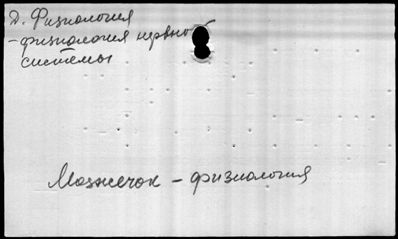 Д. Физиология
-физиология нервной
системы
Мозжечок - физиология